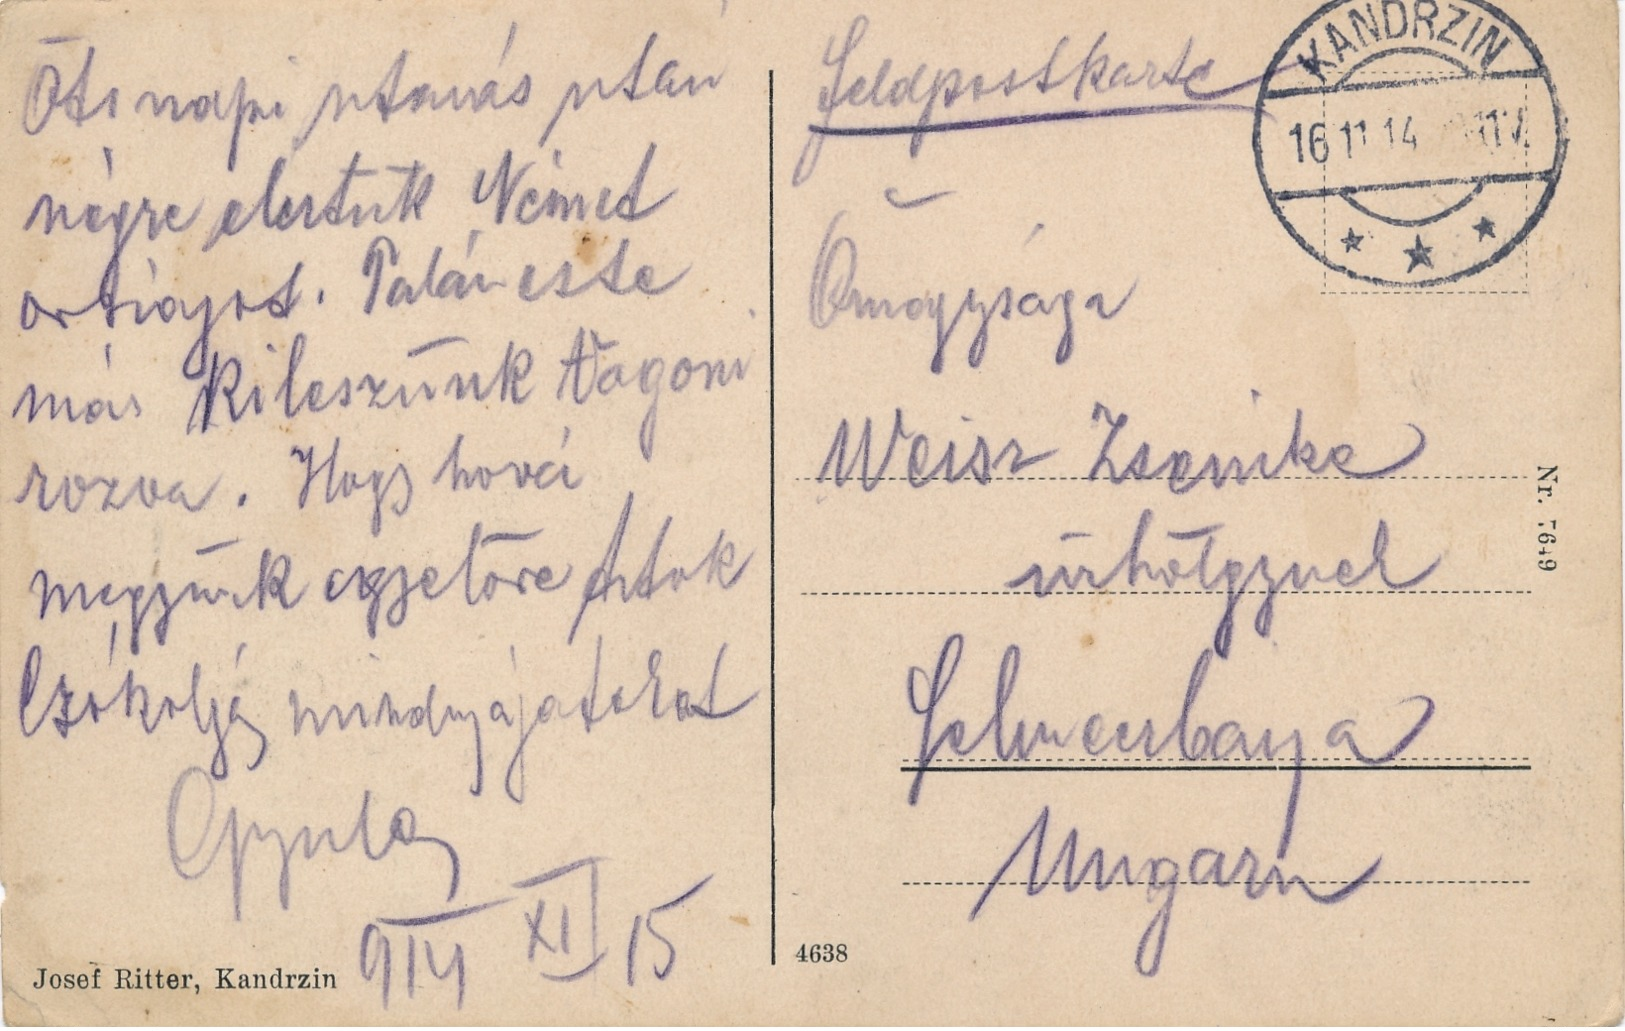 Öti napi utazás után
végre elertük Német
országot. Talán este
már kileszünk Vagoni
rozva. Hogy hová
megyünk egyelőre titok
Czókolja mindnyájatokat
Gyula
914 XI 15
Josef Ritter, Kandrzin
Feldpostkarte
KANDRZIN
16 11 14
Őnagysága
Weisz Zsenike
úrhölgynek
Selmeczbanya
Ungarn
4638
Nr. 7649